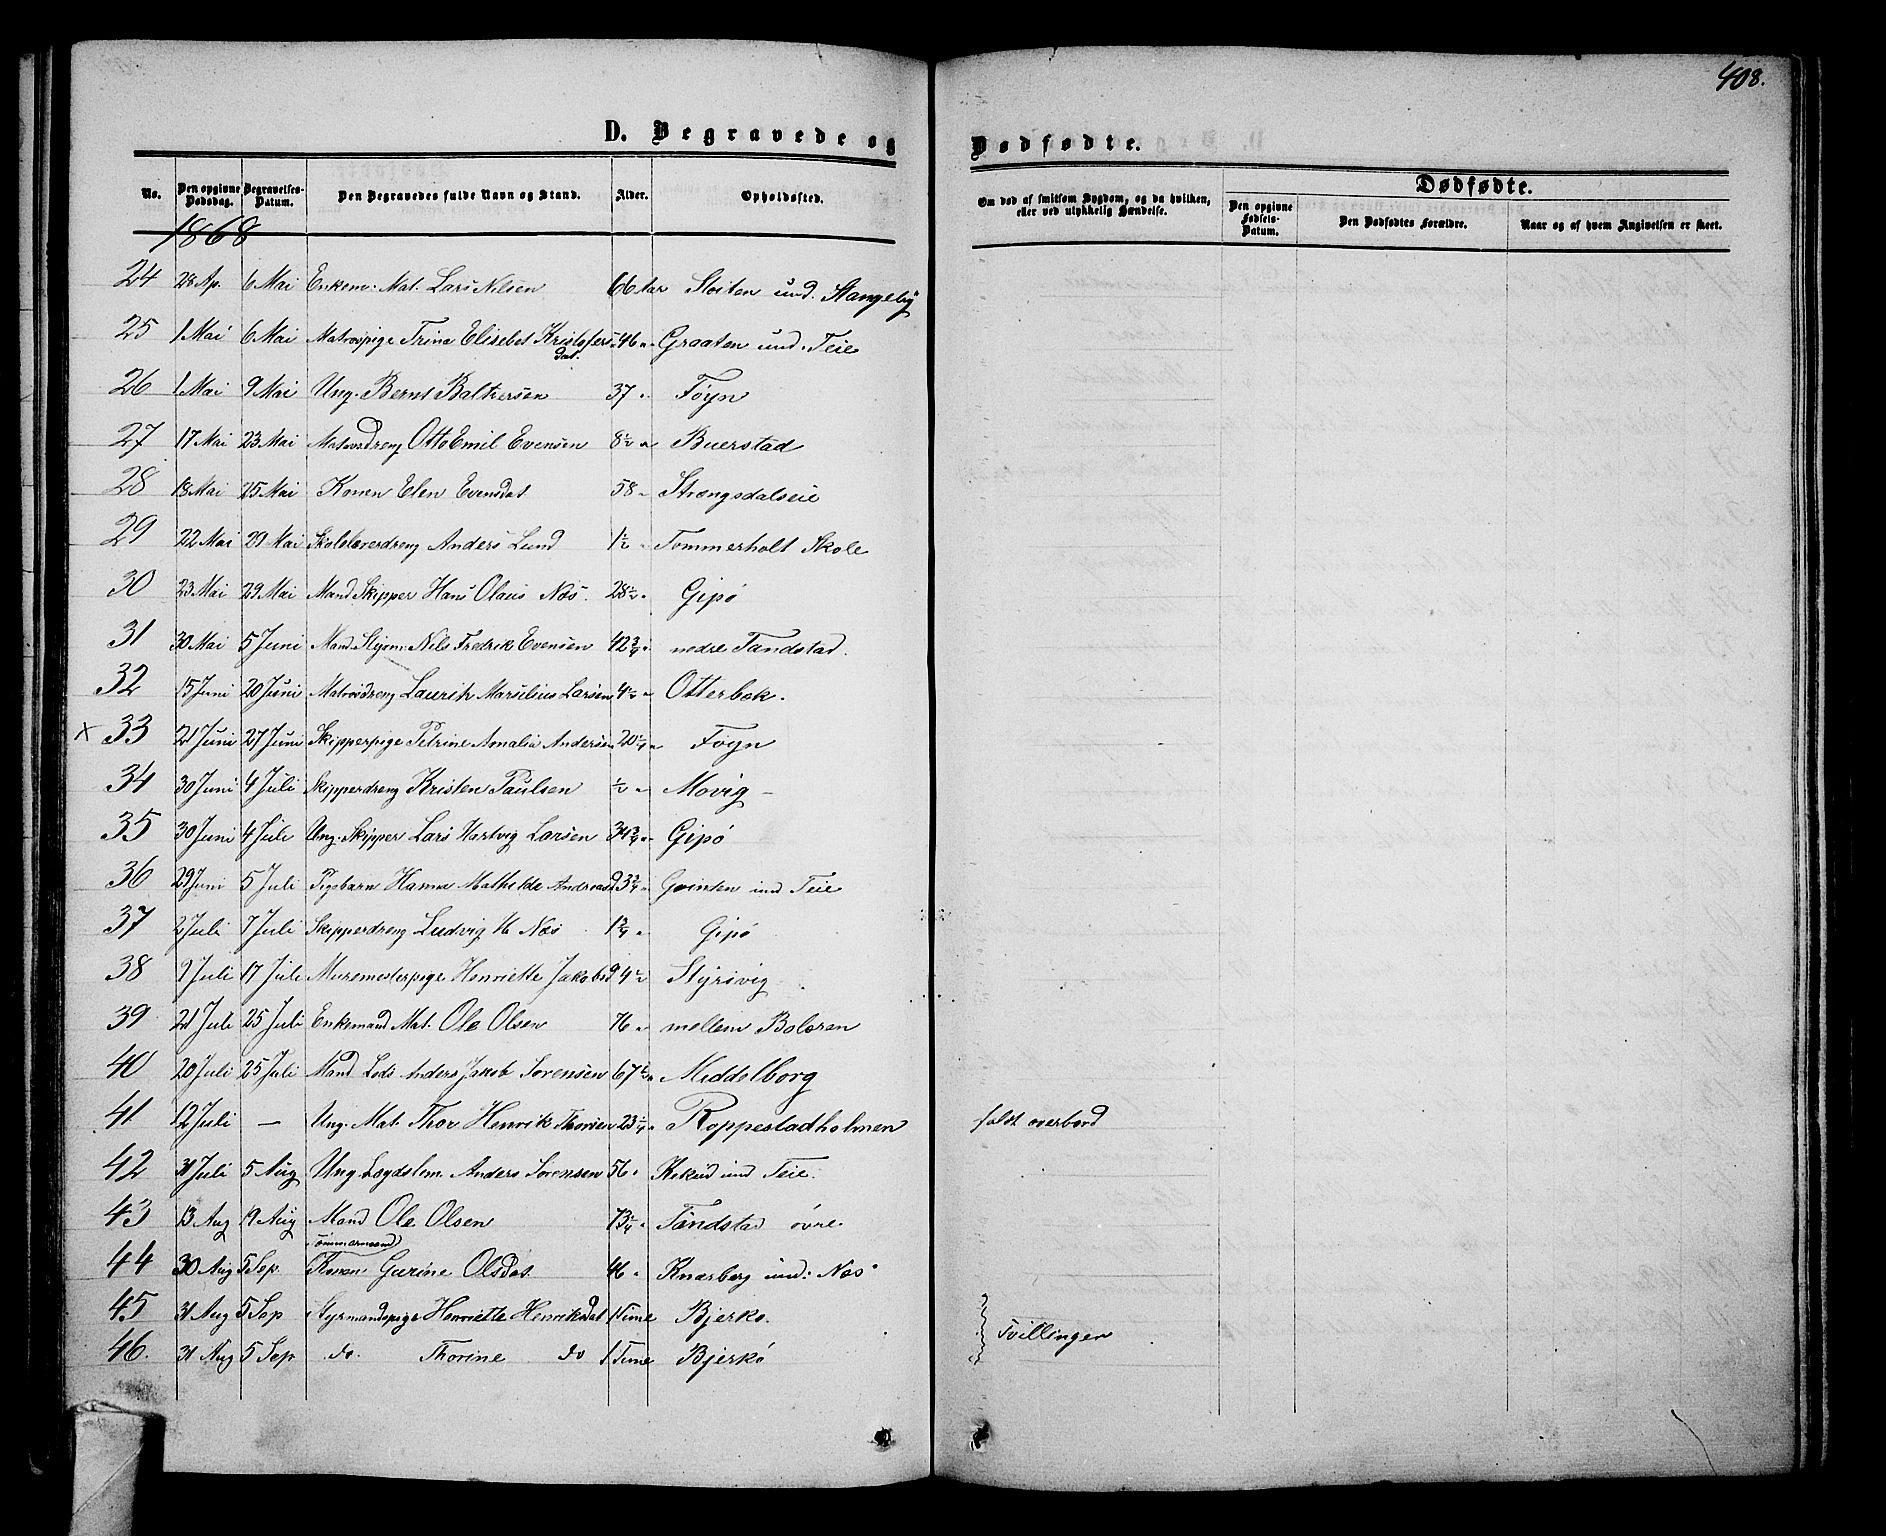 408.
D. Begravede og Dødfødte.
No. Den opgivne Dødsdag. Begravelses-Datum. Den Begravedes fulde Navn og Stand. Alder. Opholdssted. Om død af smitsom Sygdom, og da hvilken, eller ved ulykkelig Hændelse. Dødfødte. Den opgivne Fødsels-Datum. Den Dødfødtes Forældre. Naar og af hvem Angivelsen er skeet.
1868
24 28 Ap. 6 Mai Enkem. Mat. Lars Nilsen 66 Aar Sloiten und. Stangeby
25 1 Mai 6 Mai Matrospige Trina Elisebet Kristofers dat. 46 " Graaten und. Teie
26 1 Mai 9 Mai Ung. Bernt Baltsersen 37 " Föyn
27 17 Mai 23 Mai Matrosdreng Otto Emil Evensen 8½ " Buerstad
28 18 Mai 25 Mai Konen Elen Evensdat 58 " Strengsdalseie
29 22 Mai 29 Mai Skolelærerdreng Anders Lund 1½ " Tommerholt Skole
30 23 Mai 29 Mai Mand Skipper Hans Olaus Næs. 28½ " Gipö
31 30 Mai 5 Juni Mand Styrm. Nils Fredrik Evensen 42¾ " nedre Tandstad.
32 15 Juni 20 Juni Matrosdreng Laurits Marselius Larsen 4½ " Otterbek.
x 33 21 Juni 27 Juni Skipperpige Petrine Amalia Andersen 20¼ " Föyn
34 30 Juni 4 Juli Skipperdreng Kristen Paulsen ½ " Movig -
35 30 Juni 4 Juli Ung. Skipper Lars Hartvig Larsen 34¾ " Gipö
36 29 Juni 5 Juli Pigebarn Hanna Mathilde Andreasd 3¾ " Gvinten und Teie
37 2 Juli 7 Juli Skipperdreng Ludvig H Næs 1¾ " Gipö
38 9 Juli 17 Juli Muremesterpige Henriette Jakobsd 4½ Styrsvig
39 21 Juli 25 Juli Enkemand Mat. Ole Olsen 76 " mellem Bolæren
40 20 Juli 25 Juli Mand Lods Anders Jakob Sorensen 67½ " Middelborg
41 12 Juli — Ung. Mat. Thor Henrik Thorsen 23¼ " Roppestadholmen faldt overbord
42 31 Juli 5 Aug Ung Lægdslem Anders Sorensen 56 " Kekud und Teie.
43 13 Aug 19 Aug Mand Ole Olsen 73¼ " Tandstad övre
44 30 Aug 5 Sep. Tömmermand Konen Gurine Olsdat. 46 " Knarberg und: Næs
45 31 Aug 5 Sep Styrmandspige Henriette Henriksdat 1 Time Bjerkö. Tvillinger
46. 31 Aug 5 Sep do. Thorine do 1 Time Bjerkö